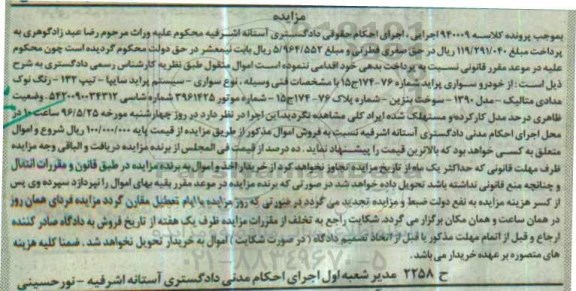 مزایده
بموجب پرونده کلاسه ۹۴۰۰۰۹ اجرایی، اجرای احکام حقوقی دادگستری آستانه اشرفیه محکوم علیه وراث مرحوم رضا عبد زادگوهری به
پرداخت مبلغ ۱۱۹/۲۹۱/۰۴۰ ریال در حق صغری فطرتی و مبلغ ۵/۹۶۴/۵۵۲ ریال بابت نیمعشر در حق دولت محکوم گردیده است چون محکوم
علیه در موعد مقرر قانونی نسبت به پرداخت بدهی خود اقدامی ننموده است اموال منقول طبق نظریه کارشناس رسمی دادگستری به شرح
ذیل است: از خودرو سواری پراید شماره ۷۶-۱۷۴ج۱۵ با مشخصات فنی وسیله، نوع سواری - سیستم پراید سایپا - تیپ ۱۳۲ - رنگ نوک
مدادی متالیک - مدل ۱۳۹۰ - سوخت بنزین - شماره پلاک ۷۶-۱۷۴ج۱۵ - شماره موتور ۳۹۶۱۴۲۵ شماره شاسی ۵۴۲۰۰۹۰۰۳۴۳۱۲. وضعیت
ظاهری درحد مدل کارکرده و مستهلک شده ایراد کلی مشاهده نگردید. این اجرا در نظر دارد در روز چهارشنبه مورخه ۹۶/۵/۲۵ ساعت ۱۰ در
محل اجرای احکام مدنی دادگستری آستانه اشرفیه نسبت به فروش اموال مذکور از طریق مزایده از قیمت پایه ۱۰۰/۰۰۰/۰۰۰ ریال شروع و اموال
متعلق به کسی خواهد بود که بالاترین قیمت را پیشنهاد نماید. ده درصد از قیمت فی المجلس از برنده مزایده دریافت و الباقی وجه مزایده
ظرف مهلت قانونی که حداکثر یک ماه از تاریخ مزایده تجاوز نخواهد کرد از خریدار اخذ و اموال به برنده مزایده در طبق قانون و مقررات انتقال
و چنانچه منع قانونی نداشته باشد تحویل داده خواهد شد در صورتی که برنده مزایده در موعد مقرر بقیه بهای اموال را نپردازد سپرده وی پس
از کسر هزینه مزایده به نفع دولت ضبط و مزایده تجدید می گردد در صورتی که روز مزایده با ایام تعطیل مقارن گردد مزایده فردای همان روز
در همان ساعت و همان مکان برگزار می گردد. شکایت راجع به تخلف از مقررات مزایده ظرف یک هفته از تاریخ فروش به دادگاه صادر کننده
ارجاع و قبل از اتمام مهلت مذکور یا قبل از اتخاذ تصمیم دادگاه (در صورت شکایت) اموال به خریدار تحویل نخواهد شد. ضمنا کلیه هزینه
های متصوره بر عهده خریدار می باشد.
ح ۲۲۵۸ مدیر شعبه اول اجرای احکام مدنی دادگستری آستانه اشرفیه - نورحسینی
۰۲۱-۸۸۳۴۹۶۷۰-۵